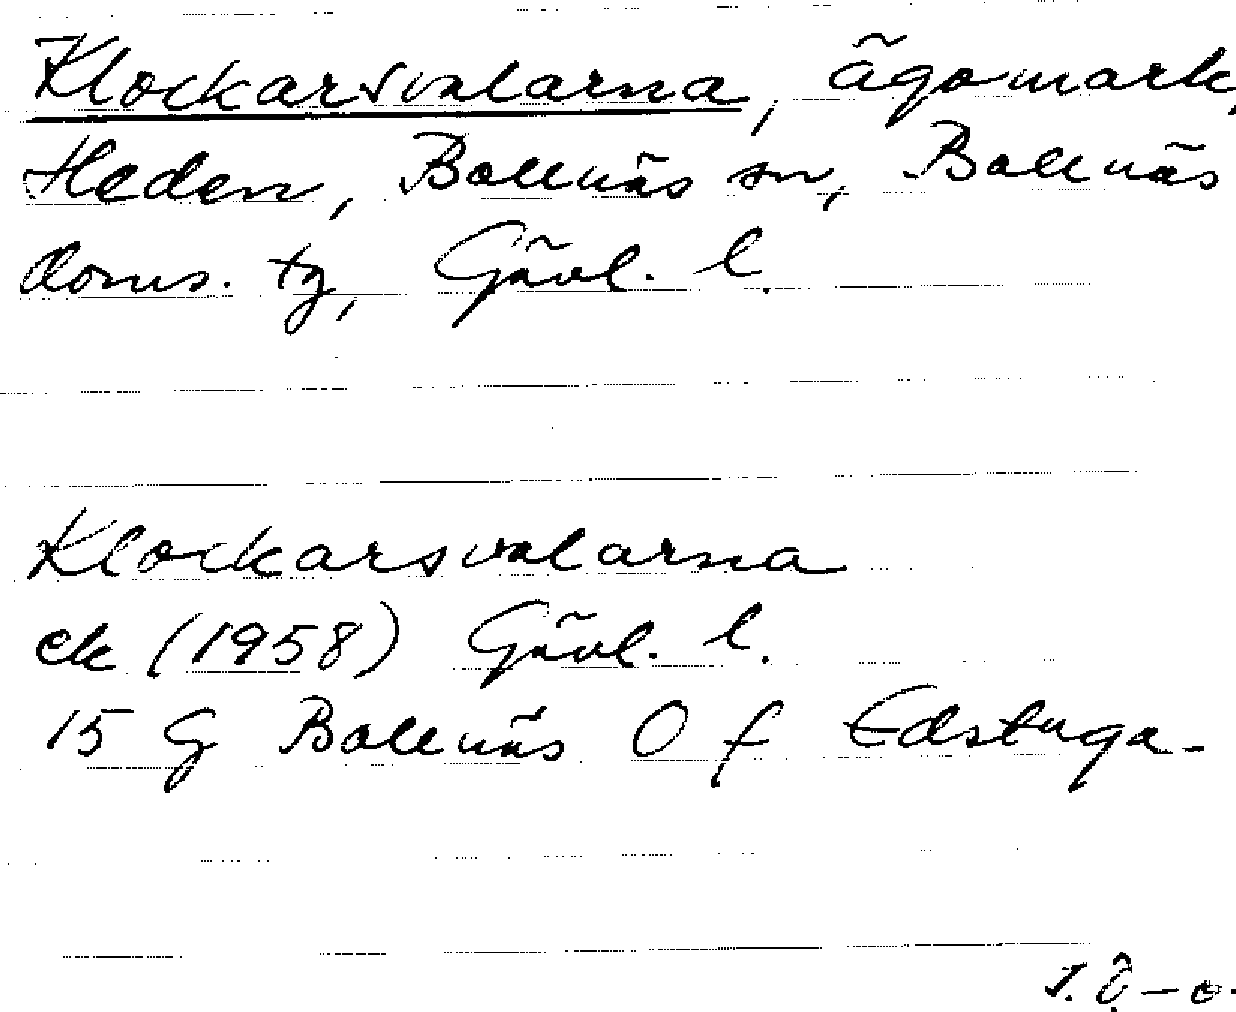 Klockarsvalarna, ägomark,
Heden, Bollnäs sn, Bollnäs
doms. tg, Gävl. l.
Klockarsvalarna
ek (1958) Gävl. l.
15 G Bollnäs 0 f Edstuga-